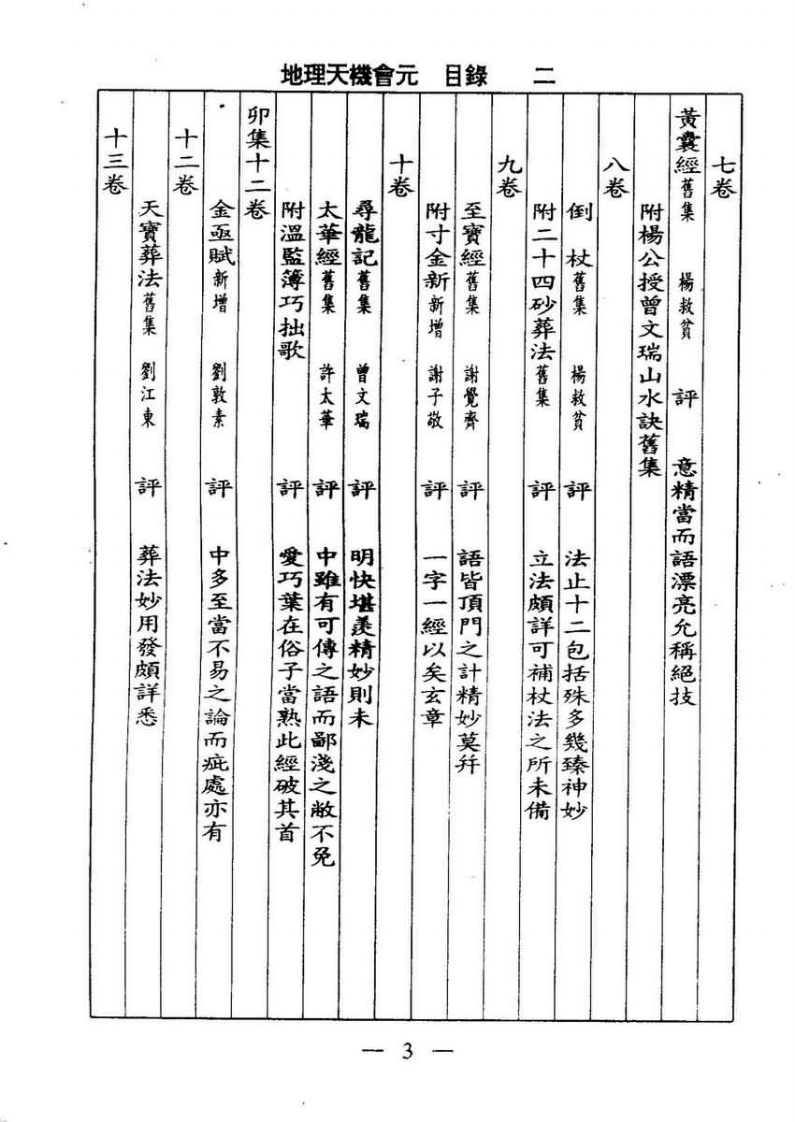 地理天機會元　目錄　二
七卷
黃囊經舊集　楊救貧　評　意精當而語漂亮允稱絕技
附楊公授曾文瑞山水訣舊集
八卷
倒杖舊集　楊救貧　評　法止十二包括殊多幾臻神妙
附二十四砂葬法舊集　評　立法頗詳可補杖法之所未備
九卷
至寶經舊集　謝覺齊　評　語皆頂門之計精妙莫幷
附寸金新新增　謝子敬　評　一字一經以矣玄章
十卷
尋龍記舊集　曾文瑞　評　明快堪羨精妙則未
太華經舊集　許太華　評　中雖有可傳之語而鄙淺之敝不免
附溫監簿巧拙歌　評　愛巧葉在俗子當熟此經破其首
卯集十二卷
金函賦新增　劉敦素　評　中多至當不易之論而疵處亦有
十二卷
天寶葬法舊集　劉江東　評　葬法妙用發頗詳悉
十三卷
— 3 —